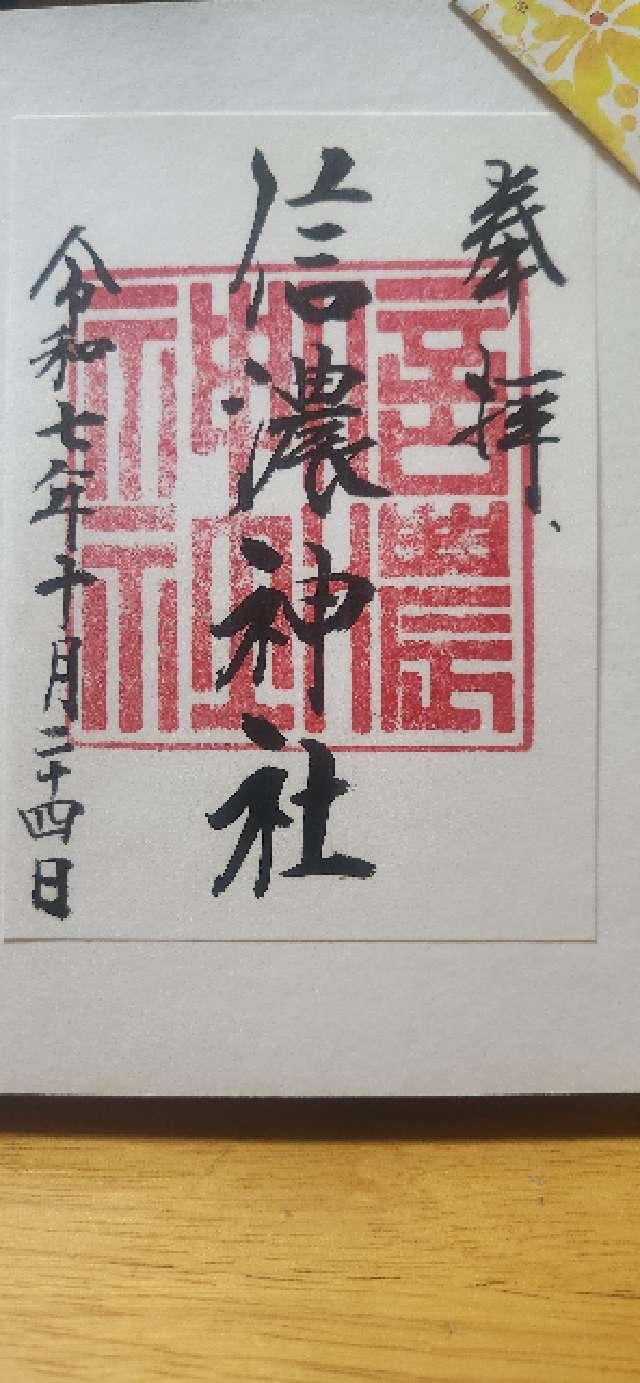 奉拝
信濃神社
令和七年十月二十四日